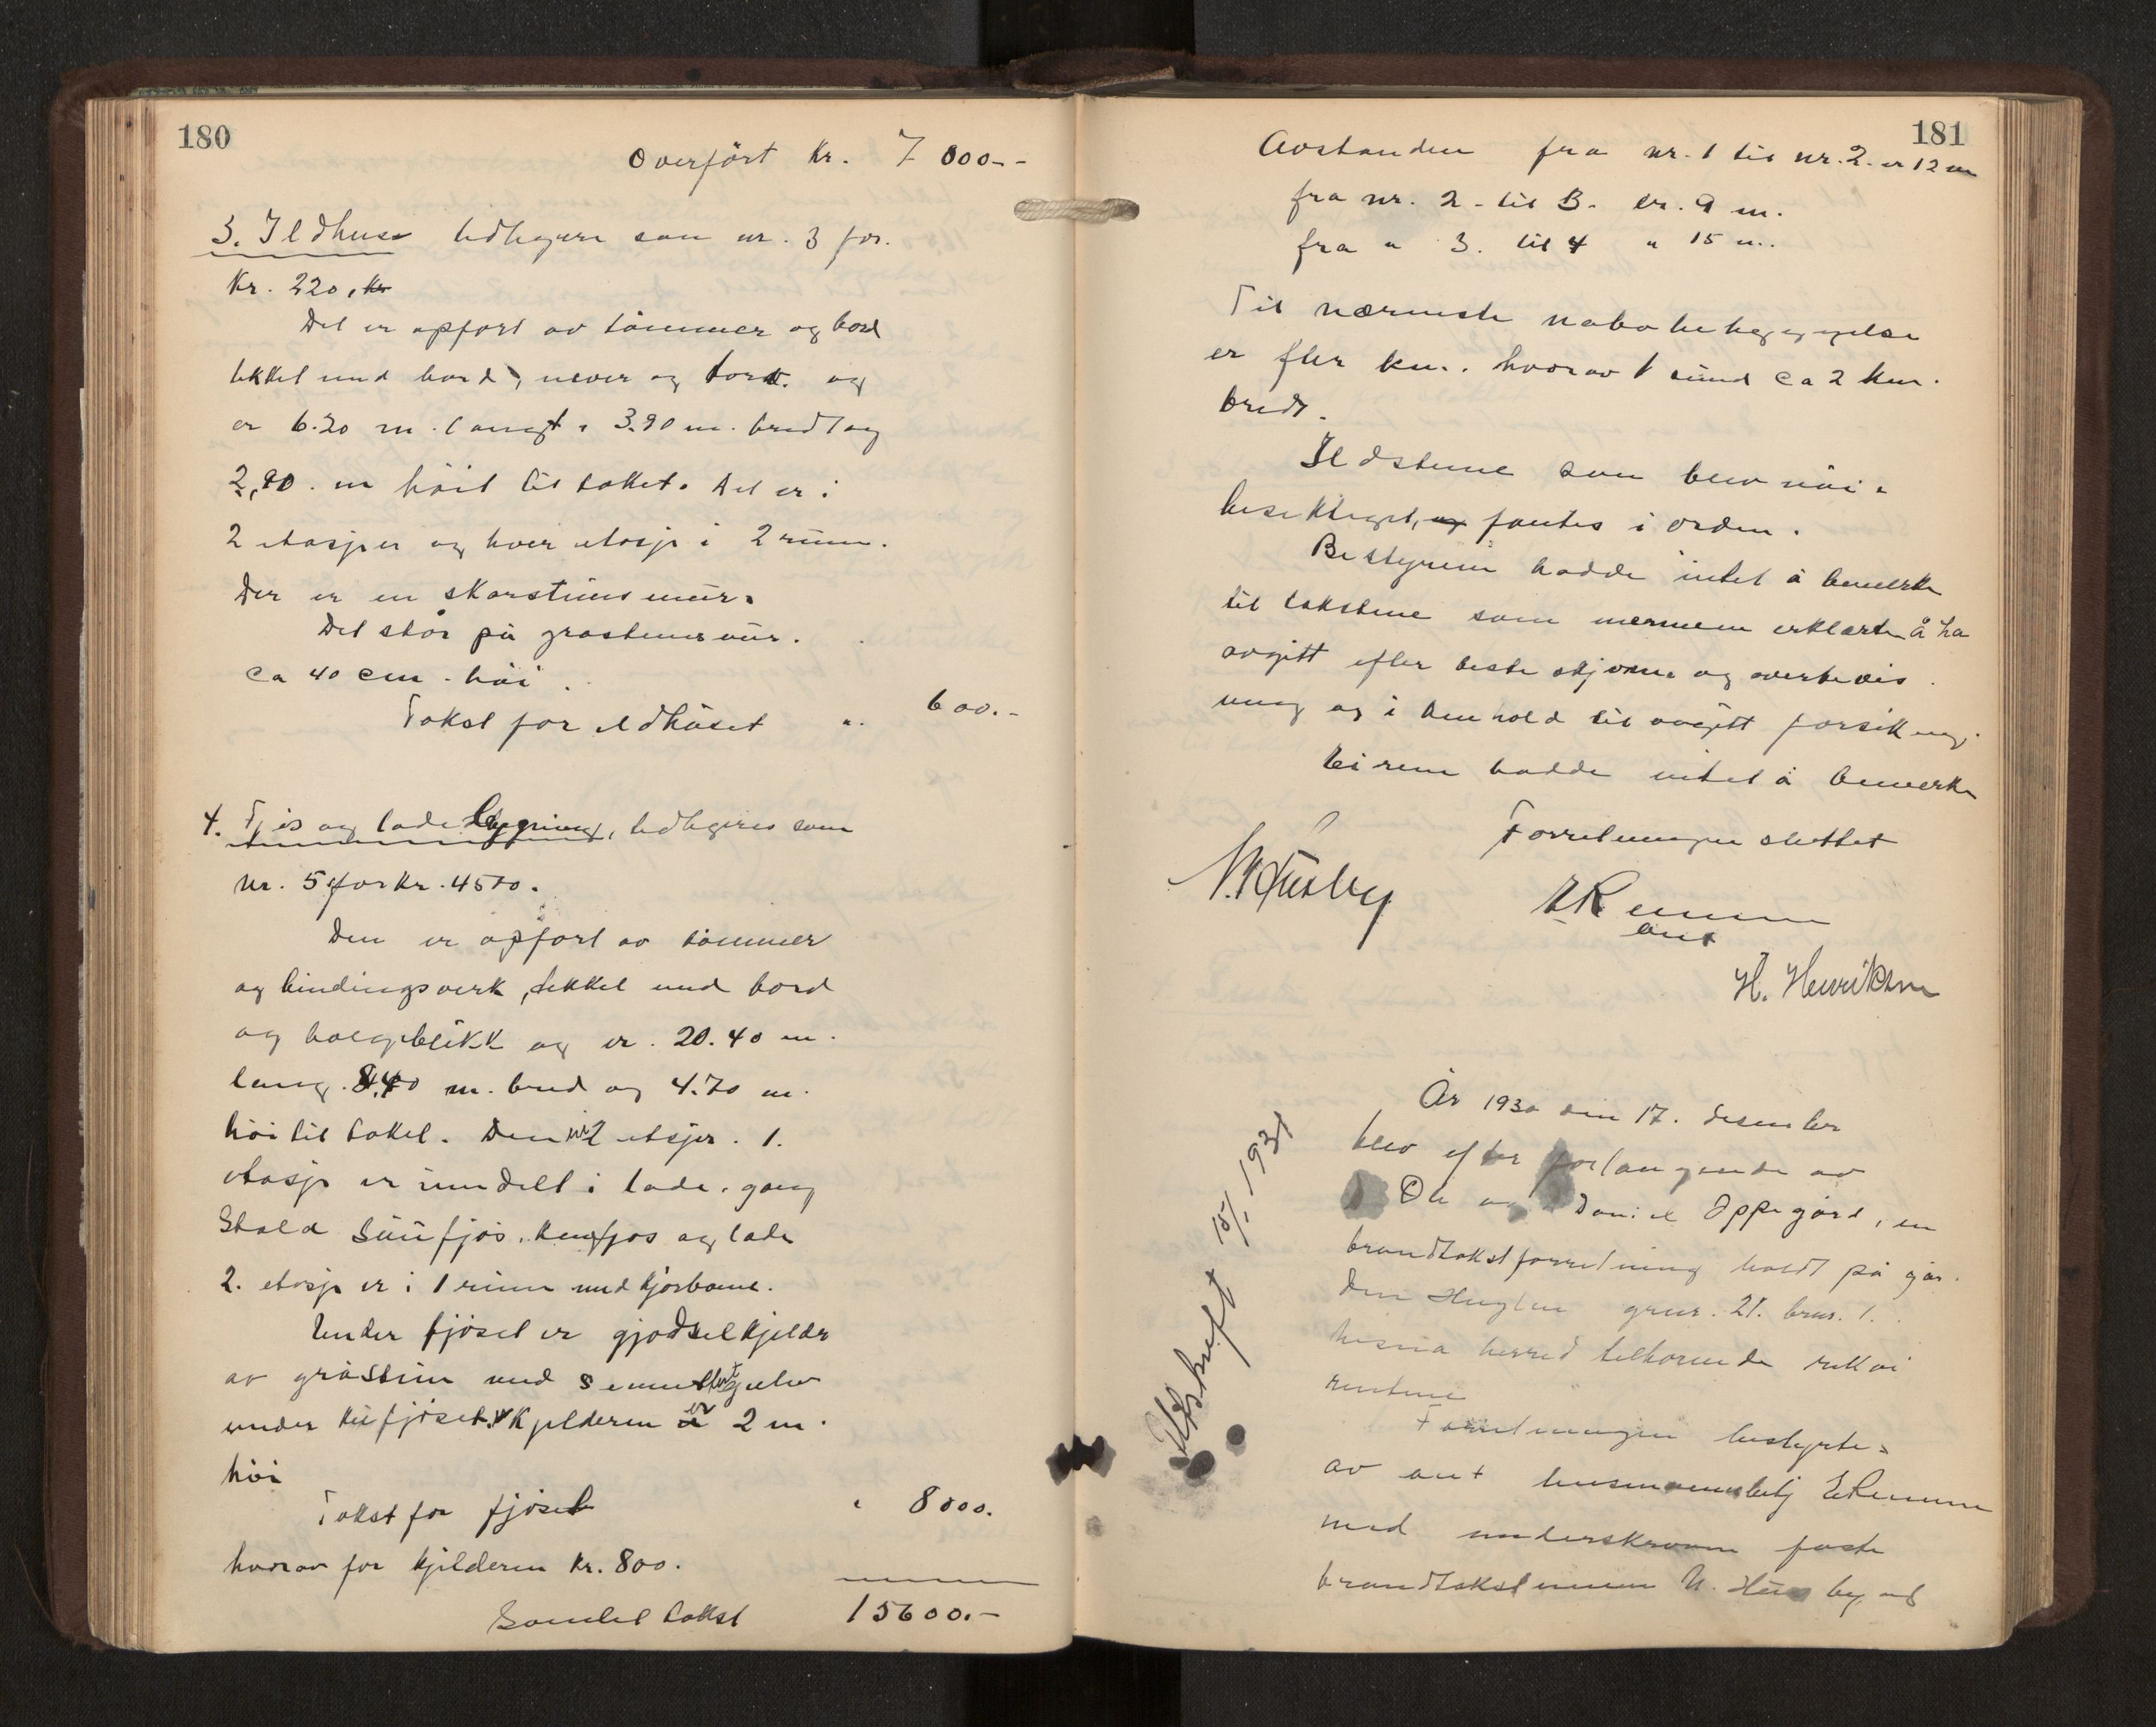 180
Overført kr. 7 000.-
3. Ildhuse tidligere som nr. 3 for.
kr. 220,
Det er opført av tømmer og bord
tekket med bord, never og torv. og
er 6.20 m. langt, 3.90 m. bredt og
2,90. m høit til taket. Det er i
2 etasjer og hver etasje i 2 rum.
Der er en skorstensmur.
Det står på gråstensmur.
ca 40 cm. høi.
Takst for ildhuset ". 600.-
4. Fjøs og ladebygning, tidligere som
nr. 5 for kr. 4500.
Den er opført av tømmer
og bindingsverk, tekket med bord
og bølgeblikk og er. 20.40 m.
lang. 8,40 m. bred og 4.70 m.
høi til taket. Den i 2 etasjer. 1.
etasje er inndelt i lade, gang
Stald fjøs, fjøs og lade
2. etasje er i 1 rum med kjørbane.
Under fjøset er gjødselkjelder
av gråsten med sementgulv
under kufjøset. Kjelderen er 2 m.
høi
Takst for fjøset " 8000.
hvorav for kjelderen kr. 800.
Samlet takst 15600.-
181
Avstanden fra nr. 1 til nr. 2. er 12 m
fra nr. 2 - til 3. er. 9 m.
fra " 3. til 4 " 15 m.
Til nærmeste nabobebyggelse
er flere km. hvorav 1 sund ca 2 km.
bredt.
Ildstedene som blev nøie
besiktiget, fantes i orden.
Bestyreren hadde intet å bemerke
til takstene som mennene erklærte å ha
avgitt efter beste skjønn og overbevis
ning og i henhold til avgitt forsikring.
Eieren hadde intet å bemerke
Forretningen sluttet
N. Husby
E Remmen
ant
H. Henriksen
Utskrift 15/1 1931
År 1930 den 17. desember
blev efter forlangende av
Ole og Daniel Oppegård, en
brandtakstforretning holdt på går
den Huglen gnr. 21. brnr. 1.
Nesna herred tilhørende rekvi
rentene
Forretningen bestyrtes
av ant E Remmen
med underskrevne faste
brandtakstmenn N. Husby og